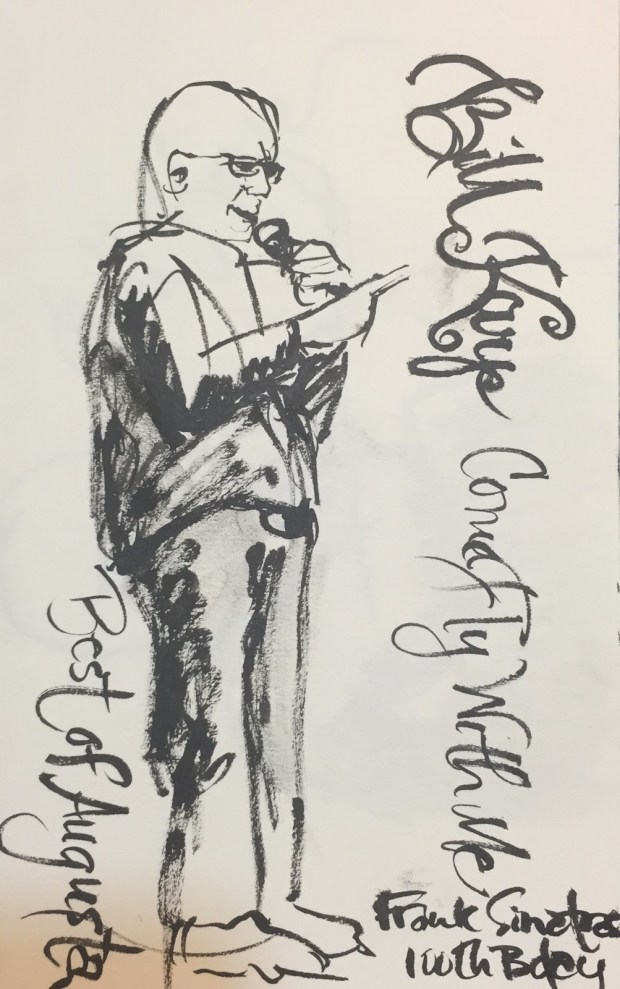 Bill Karp
Come Fly With Me
Frank Sinatras
100th Bday
Best of Augusta